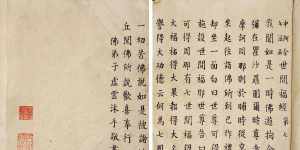 中阿含世間福經第七
我聞如是一時佛遊拘舍
彌在瞿沙羅園爾時尊者
摩訶周那則於晡時從宴
坐起往詣佛所到已作禮
却坐一面白曰世尊可得
施設世間福耶世尊告曰
可得周那有七世間福得
大福祐得大果報得大名
譽得大功德云何為七周
一切苦佛說如是彼諸比
丘聞佛所說歡喜奉行
佛弟子虛雲沐手敬書